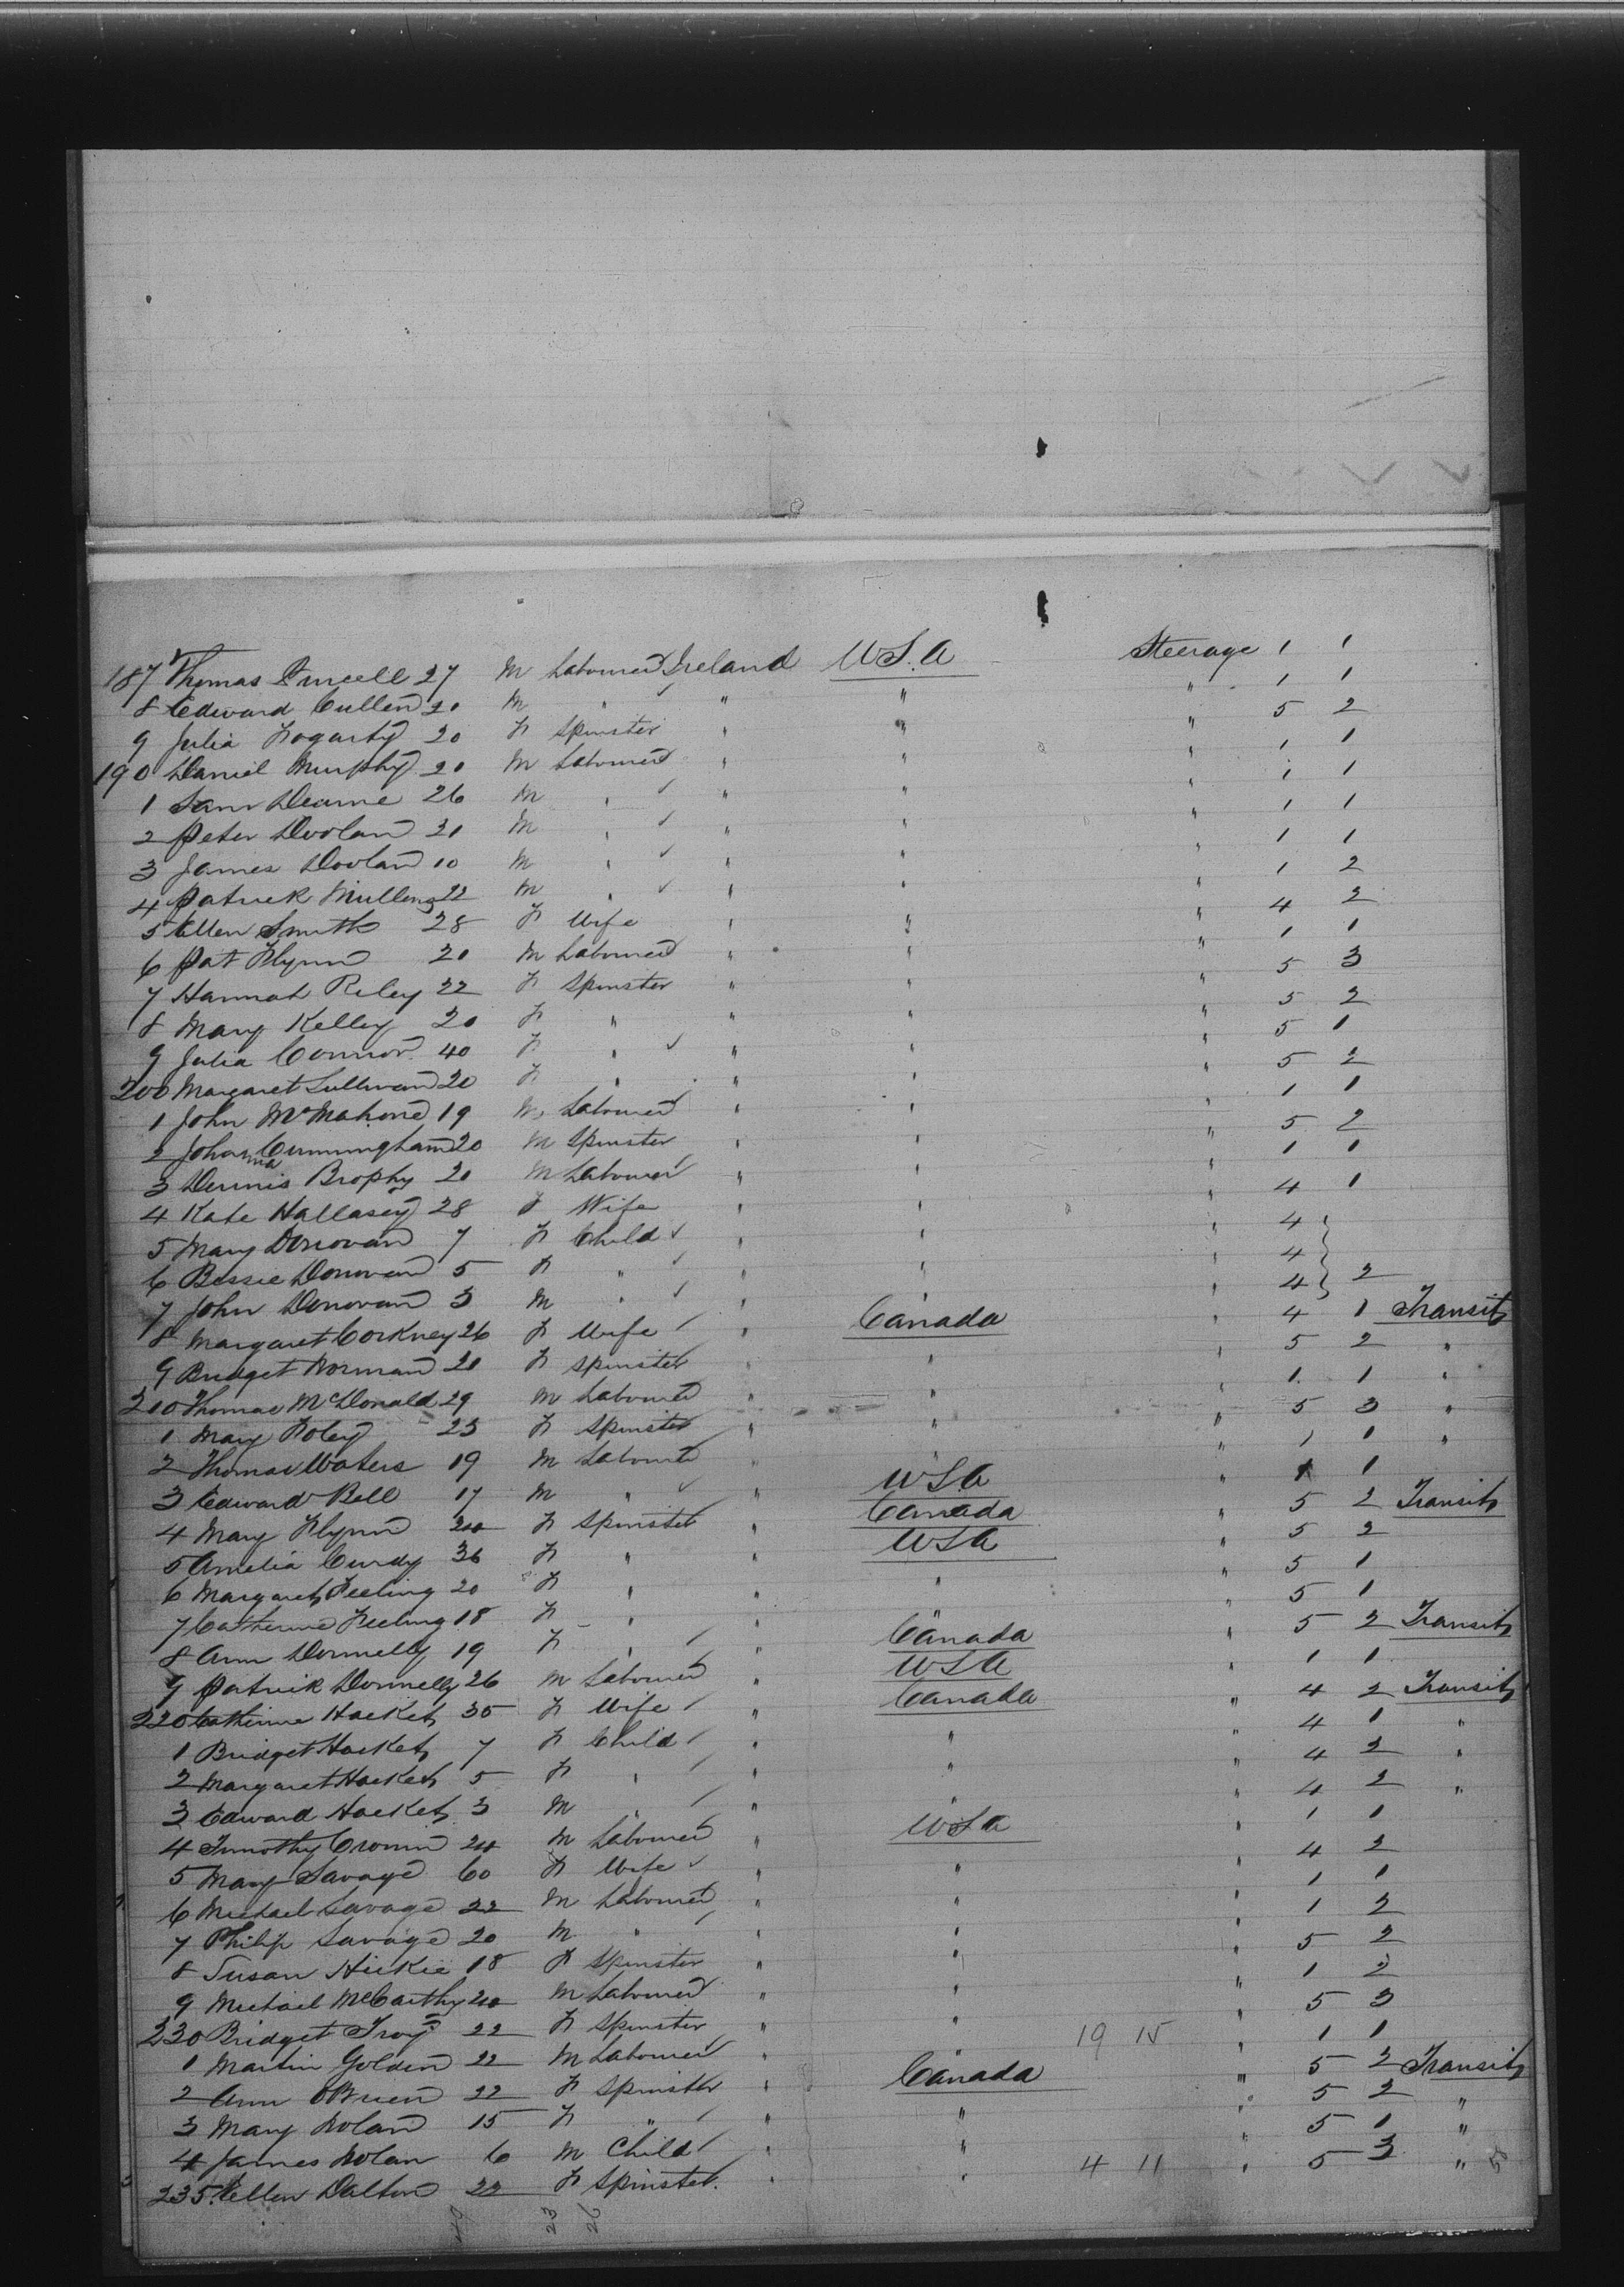 187 Thomas Purcell 27 M Labourer Ireland U.S.A Steerage 1 1
8 Edward Cullen 20 M " " " " 1 1
9 Julia Fogarty 20 F Spinster " " " 5 2
190 Daniel Murphy 20 M Labourer " " " 1 1
1 26 M " " " " 1 1
2 Peter Doolan 21 M " " " " 1 1
3 James Doolan 10 M " " " " 1 1
4 Patrick Mullens 22 M " " " " 1 2
5 Ellen Smith 28 F Wife " " " 4 2
6 Pat Flynn 20 M Labourer " " " 1 1
7 Hannah Riley 22 F Spinster " " " 5 3
8 Mary Kelley 20 F " " " " 5 2
9 Julia Connor 40 F " " " " 5 1
200 Margaret Sullivan 20 F " " " " 5 2
1 John McMahone 19 M Labourer " " " 1 1
2 Johanna Cunningham 20 M Spinster " " " 5 2
3 Dennis Brophy 20 M Labourer " " " 1 1
4 Kate Hallasey 28 F Wife " " " 4 1
5 Mary Donovan 7 F Child " " " 4
6 Bessie Donovan 5 F " " " " 4
7 John Donovan 3 M " " " " 4 2
8 Margaret Corkney 26 F Wife " Canada " 4 1 Transit
9 Bridget Norman 20 F Spinster " " " 5 2 "
210 Thomas McDonald 29 M Labourer " " " 1 1 "
1 Mary Foley 23 F Spinster " " " 5 3 "
2 Thomas Waters 19 M Labourer " " " 1 1 "
3 Edward Bell 17 M " " USA " 1 1
4 Mary Flynn 20 F Spinster " Canada " 5 2 Transit
5 Amelia Curdy 36 F " " USA " 5 2
6 Margaret Feeling 20 F " " " " 5 1
7 Catherine Feeling 18 F " " " 5 1
8 Ann Donnelly 19 F " " Canada " 5 2 Transit
9 Patrick Donnelly 26 M Labourer " USA " 1 1
220 Catherine Hacket 35 F Wife " Canada " 4 2 Transit
1 Bridget Hacket 7 F Child " " " 4 1 "
2 Margaret Hacket 5 F " " " " 4 2 "
3 Edward Hacket 3 M " " " " 4 2 "
4 Timothy Cronin 24 M Labourer " USA " 1 1
5 Mary Savage 60 F Wife " " " 4 2
6 Michael Savage 22 M Labourer " " " 1 1
7 Philip Savage 20 M " " " " 1 2
8 Susan Hickie 18 F Spinster " " " 5 2
9 Michael McCarthy 20 M Labourer " " " 1 2
230 Bridget Troy 22 F Spinster " " " 5 3
1 Martin Golden 22 M Labourer " " 19 15 " 1 1
2 Ann OBrien 22 F Spinster " Canada " 5 2 Transit
3 Mary Nolan 15 F " " " " 5 2 "
4 James Nolan 6 M Child " " " 5 1 "
235 Ellen Dalton 22 F Spinster " " 4 11 " 5 3 "
49 23 26